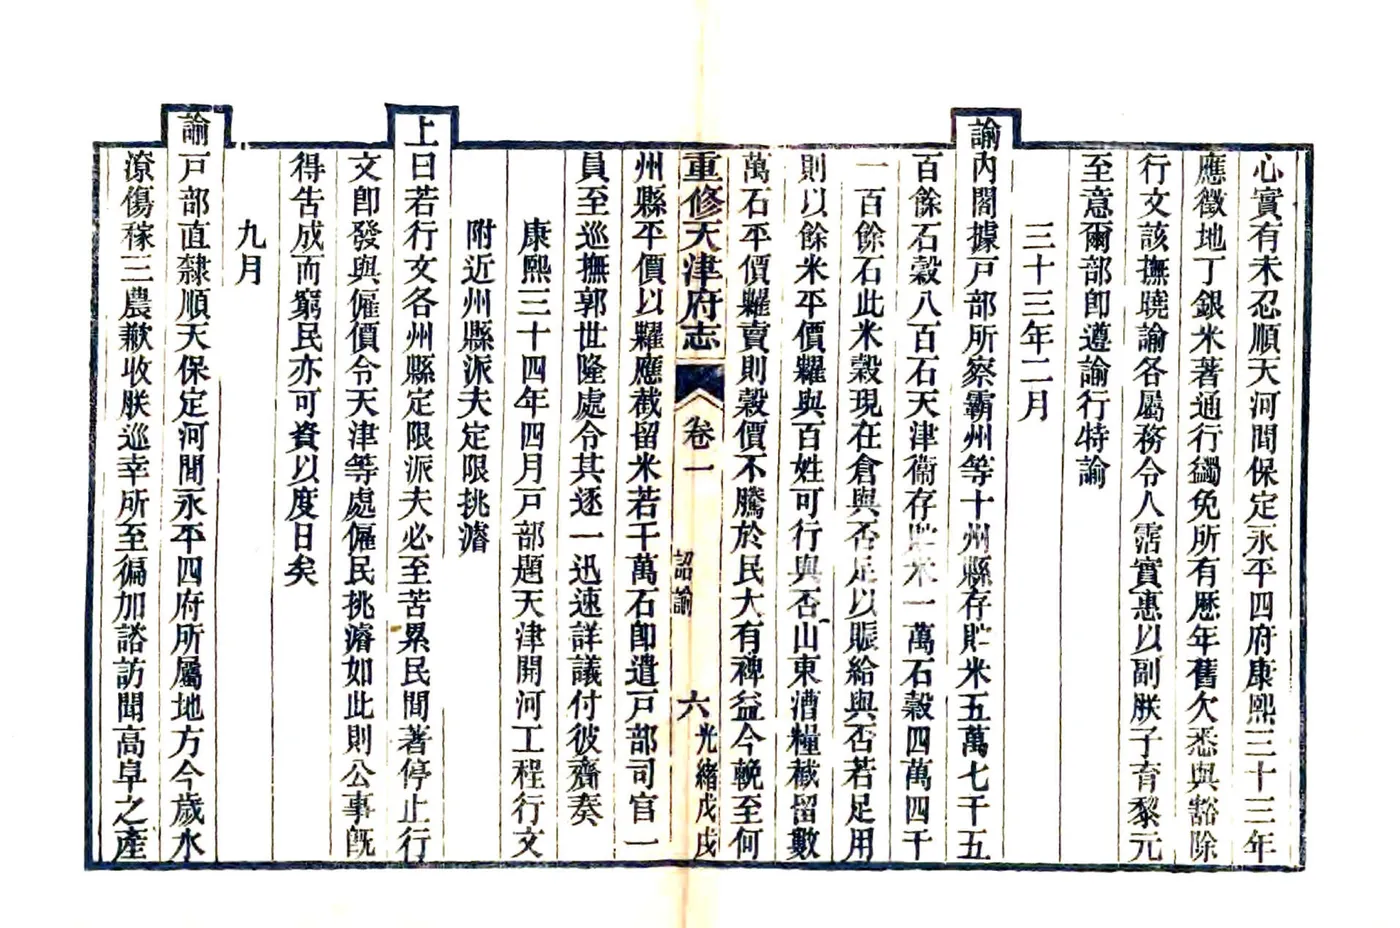 心實有未忍順天河間保定永平四府康熙三十三年
應徵地丁銀米著通行蠲免所有歷年舊欠悉與豁除
行文該撫曉諭各屬務令人霑實惠以副朕子育黎元
至意爾部卽遵諭行特諭
三十三年二月
諭內閣據戸部所察霸州等十州縣存貯米五萬七千五
百餘石穀八百石天津衞存貯米一萬石穀四萬四千
一百餘石此米穀現在倉與否足以賑給與否若足用
則以餘米平價糶與百姓可行與否山東漕糧截留數
萬石平價糶賣則穀價不騰於民大有裨益今輓至何
重修天津府志
卷一
詔諭
六
光緒戊戌
州縣平價以糶應截留米若干萬石卽遣戸部司官一
員至巡撫郭世隆處令其逐一迅速詳議付彼齎奏
康熙三十四年四月戸部題天津開河工程行文
附近州縣派夫定限挑濬
上曰若行文各州縣定限派夫必至苦累民間著停止行
文卽發與僱價令天津等處僱民挑濬如此則公事旣
得告成而窮民亦可資以度日矣
九月
諭戸部直隸順天保定河間永平四府所屬地方今歲水
潦傷稼三農歉收朕巡幸所至徧加諮訪聞高阜之產